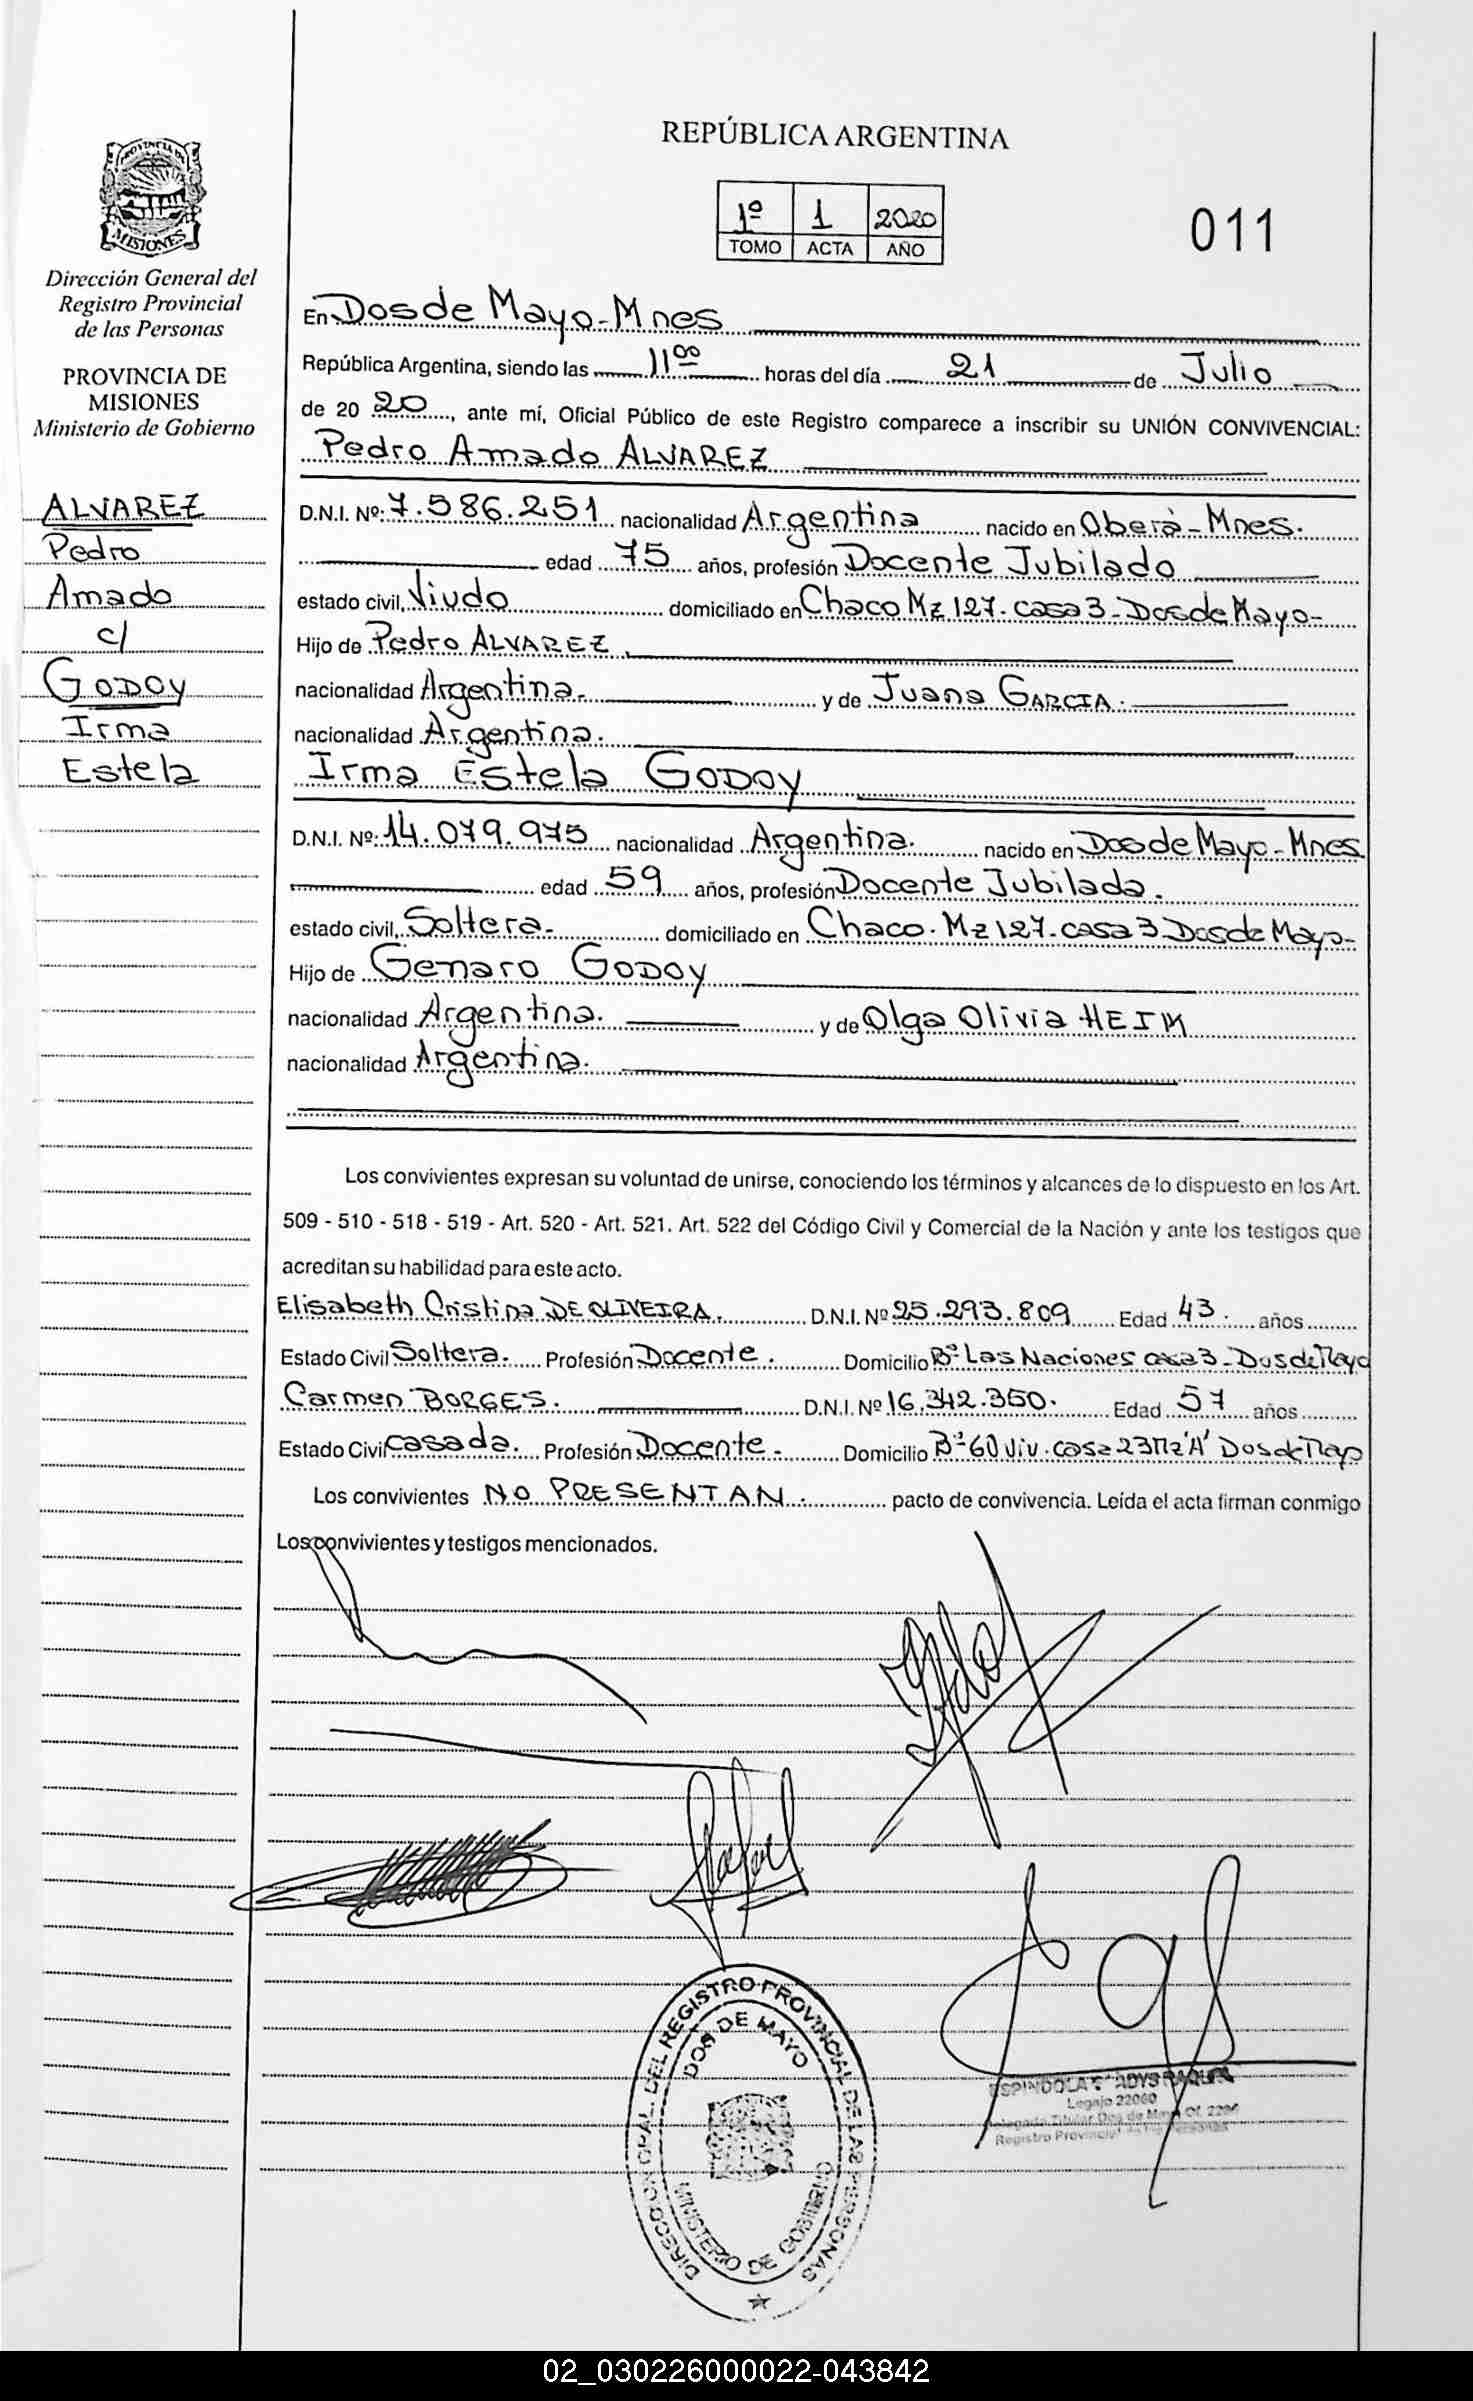 REPÚBLICA ARGENTINA
1º 1 2020
TOMO ACTA AÑO
011
PROVINCIA DE
MISIONES
Dirección General del
Registro Provincial
de las Personas
PROVINCIA DE
MISIONES
Ministerio de Gobierno
ALVAREZ
Pedro
Amado
c/
GODOY
Irma
Estela
En Dos de Mayo - Mnes
República Argentina, siendo las 11⁰⁰ horas del día 21 de Julio
de 20 20, ante mí, Oficial Público de este Registro comparece a inscribir su UNIÓN CONVIVENCIAL:
Pedro Amado ALVAREZ
D.N.I. Nº: 7.586.251 nacionalidad Argentina nacido en Oberá - Mnes.
edad 75 años, profesión Docente Jubilado
estado civil, Viudo domiciliado en Chaco Mz 127. casa 3 - Dos de Mayo -
Hijo de Pedro ALVAREZ.
nacionalidad Argentina. y de Juana GARCIA.
nacionalidad Argentina.
Irma Estela GODOY
D.N.I. Nº: 14.079.975 nacionalidad Argentina. nacido en Dos de Mayo - Mnes
edad 59 años, profesión Docente Jubilada.
estado civil, Soltera. domiciliado en Chaco. Mz 127. casa 3 Dos de Mayo -
Hijo de Genaro GODOY
nacionalidad Argentina. y de Olga Olivia HEIM
nacionalidad Argentina.
Los convivientes expresan su voluntad de unirse, conociendo los términos y alcances de lo dispuesto en los Art.
509 - 510 - 518 - 519 - Art. 520 - Art. 521. Art. 522 del Código Civil y Comercial de la Nación y ante los testigos que
acreditan su habilidad para este acto.
Elisabeth Cristina DE OLIVEIRA. D.N.I. Nº 25.293.809 Edad 43. años
Estado Civil Soltera. Profesión Docente. Domicilio Bº Las Naciones casa 3 - Dos de Mayo
Carmen BORGES. D.N.I. Nº 16.342.350. Edad 57 años
Estado Civil casada. Profesión Docente. Domicilio Bº 60 Viv. casa 23 Mz 'A' Dos de Mayo
Los convivientes NO PRESENTAN. pacto de convivencia. Leída el acta firman conmigo
Los convivientes y testigos mencionados.
DIRECCION GRAL. DEL REGISTRO PROVINCIAL DE LAS PERSONAS
DOS DE MAYO
MINISTERIO DE GOBIERNO
ESPINDOLA GLADYS RAQUEL
Legajo 22060
Delegada Titular Dos de Mayo Of. 2296
Registro Provincial de las Personas
02_030226000022-043842